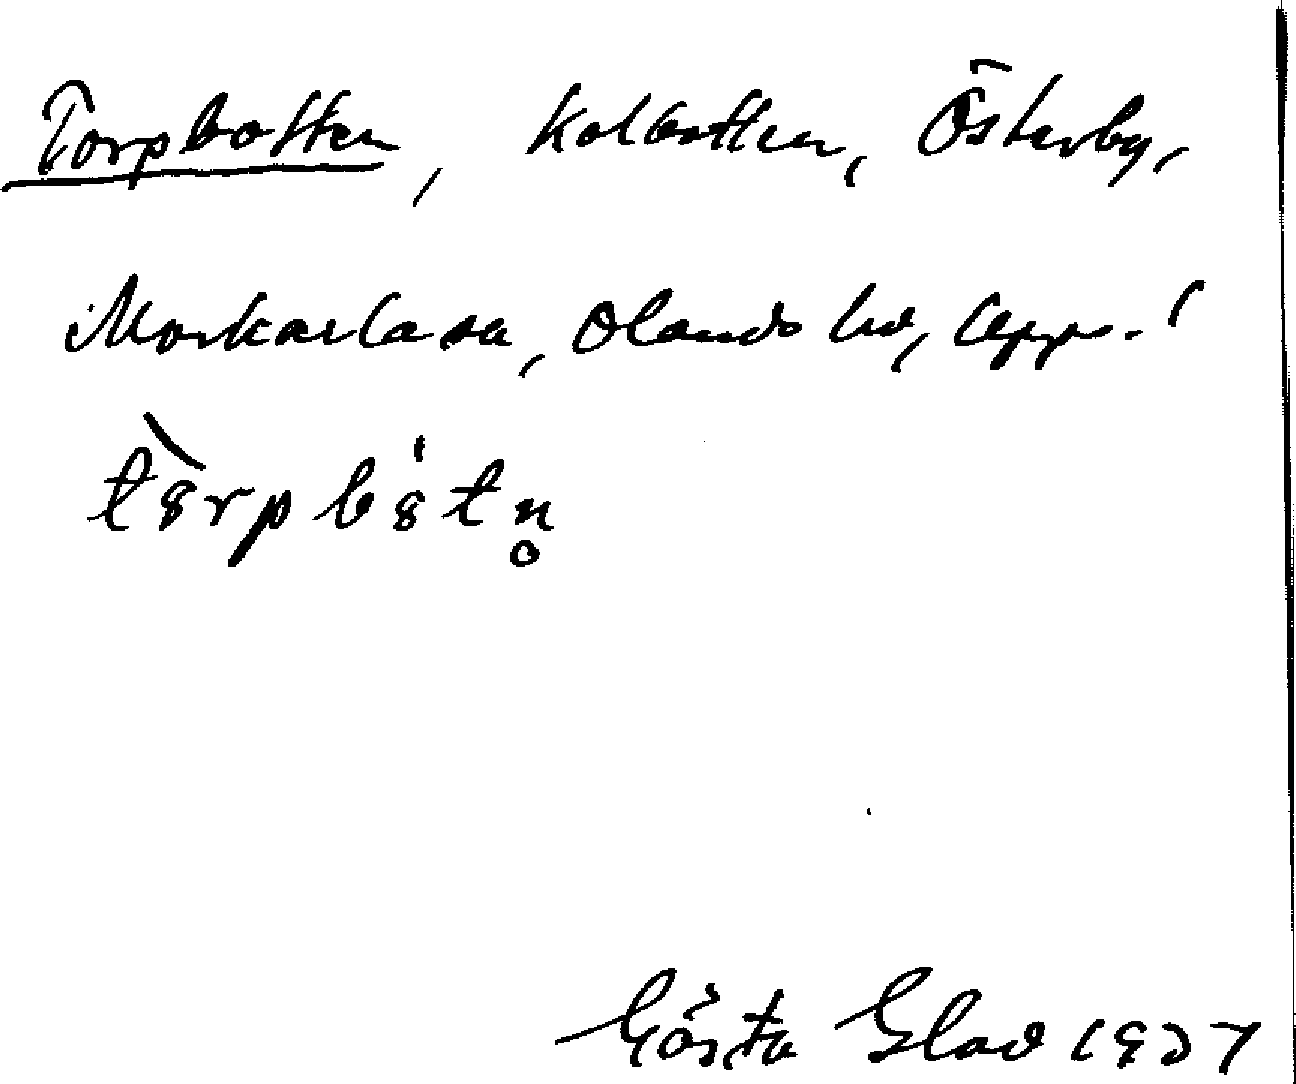 Torpbotten, Kolbotten, Österby,
Morkarla sn, Olands hd, Uppl.
Gösta Glad 1937